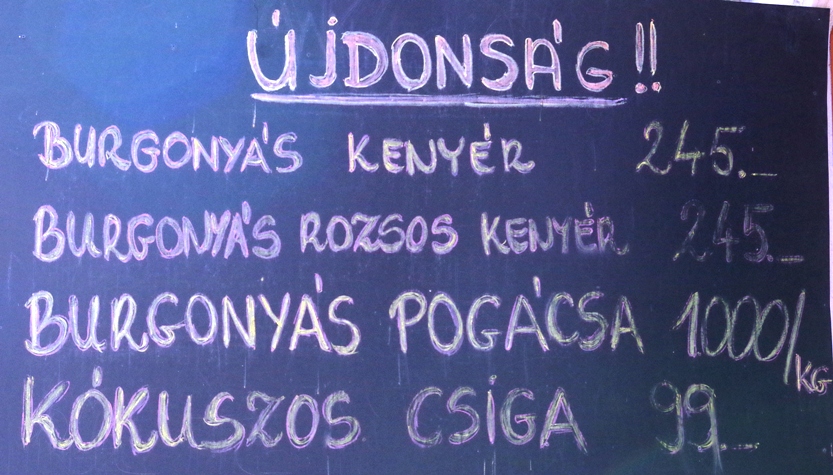 ÚJDONSÁG!!
BURGONYÁS KENYÉR 245.-
BURGONYÁS ROZSOS KENYÉR 245.-
BURGONYÁS POGÁCSA 1000/KG
KÓKUSZOS CSIGA 99.-